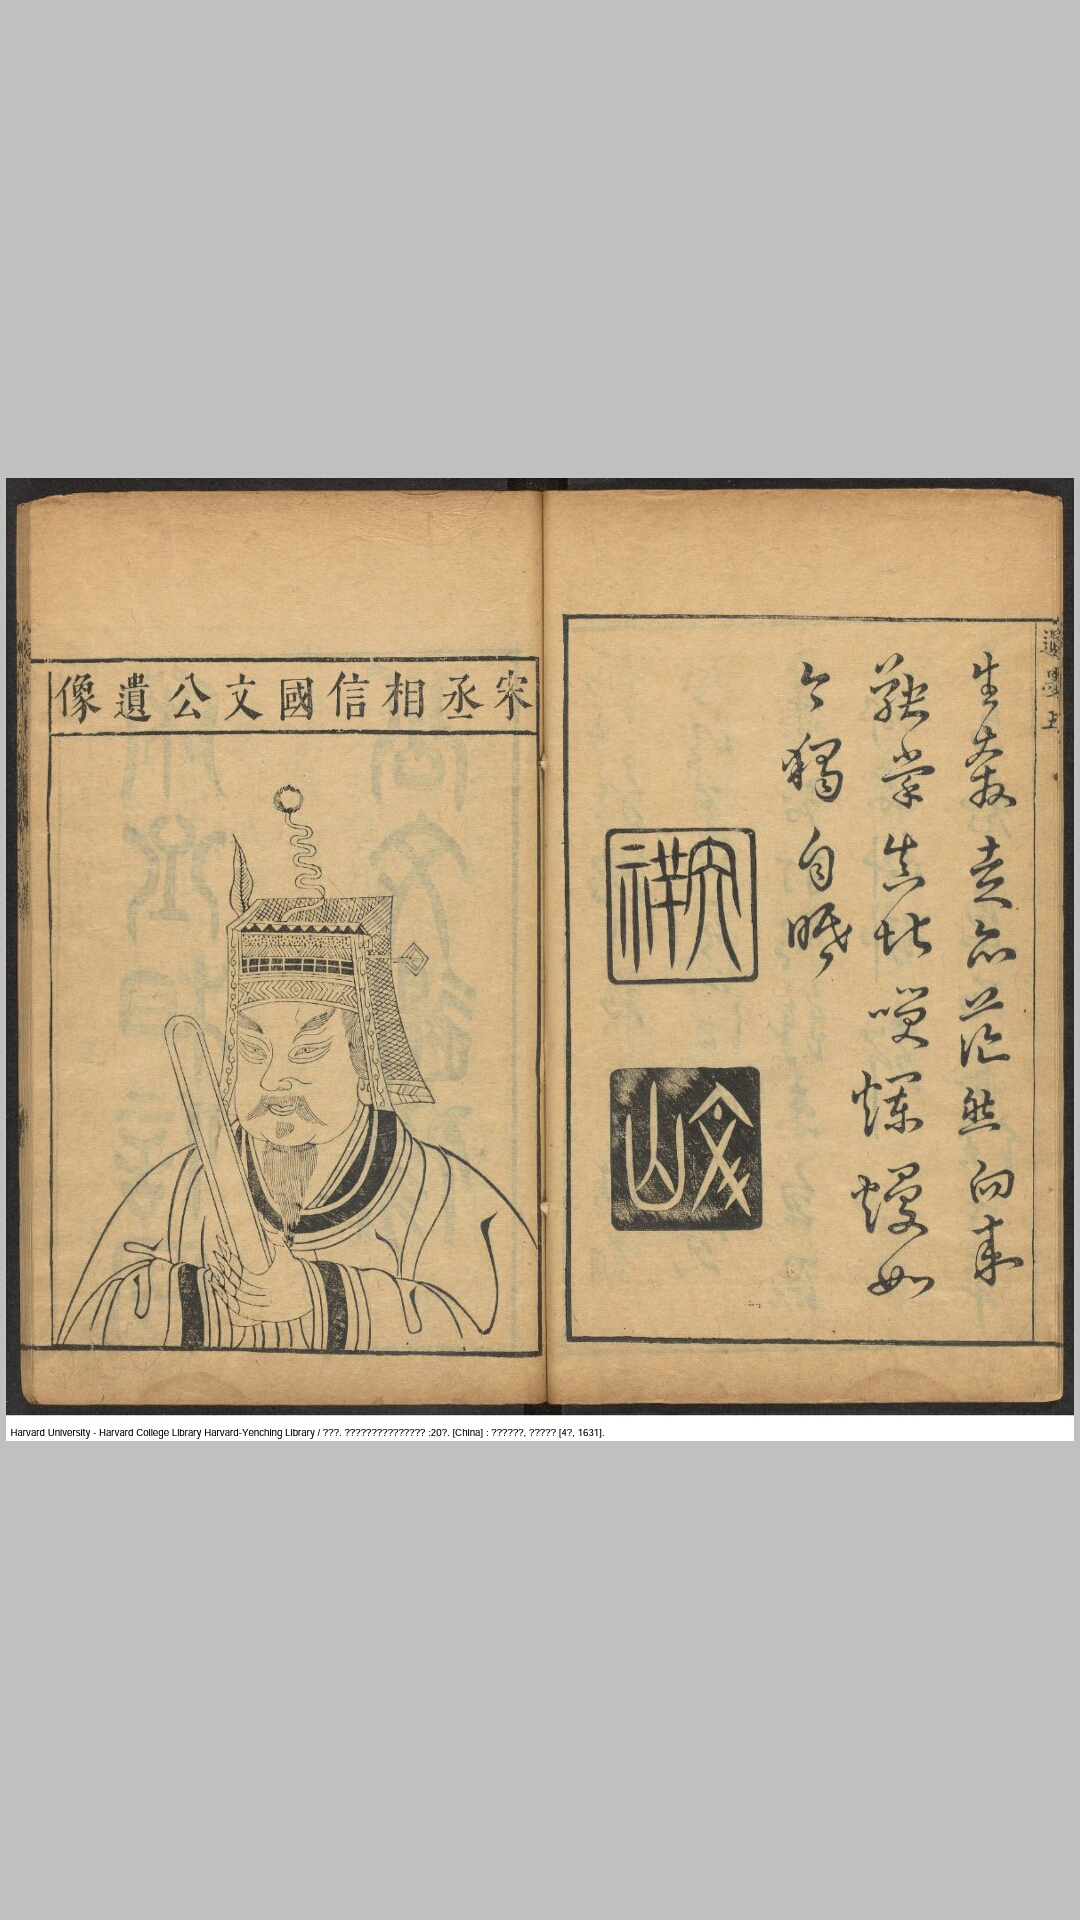 遺墨五
生亦茫然向來
鞅掌真堪咲爛熳如
今獨自眠
天祥
文山
宋丞相信國文公遺像
Harvard University - Harvard College Library Harvard-Yenching Library / ???. ??????????????? :20?. [China] : ??????, ????? [4?, 1631].